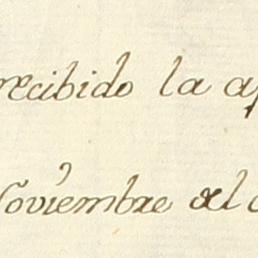 recibido la a
Noviembre del